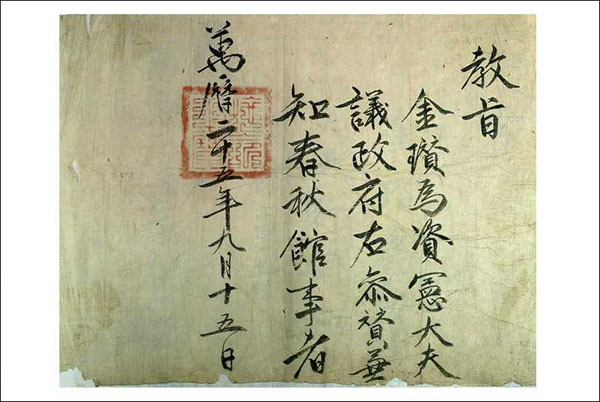 教旨
金瓚爲資憲大夫
議政府右叅贊兼
知春秋館事者
萬曆二十五年九月十五日